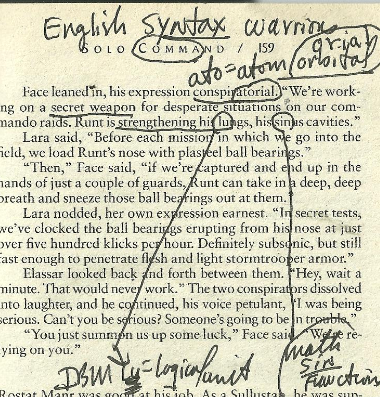 English Syntax warrior
SOLO COMMAND / 159
ato=atom/orbital
Face leaned in, his expression conspiratorial. "We're work-
ing on a secret weapon for desperate situations on our com-
mando raids. Runt is strengthening his lungs, his sinus cavities."
Lara said, "Before each mission in which we go into the
field, we load Runt's nose with plasteel ball bearings."
"Then," Face said, "if we're captured and end up in the
hands of just a couple of guards, Runt can take in a deep, deep
breath and sneeze those ball bearings out at them.
Lara nodded, her own expression earnest. "In secret tests,
we've clocked the ball bearings erupting from his nose at just
over five hundred klicks per hour. Definitely subsonic, but still
fast enough to penetrate flesh and light stormtrooper armor."
Elassar looked back and forth between them. "Hey, wait a
minute. That would never work." The two conspirators dissolved
into laughter, and he continued, his voice petulant, "I was being
serious. Can't you be serious? Someone's going to be in trouble."
"You just summon us up some luck," Face said. "We're re-
lying on you."
math
sin
function
DBM Lu=logical unit
Rostat Manr was good at his job. As a Sullustan, he was sup-